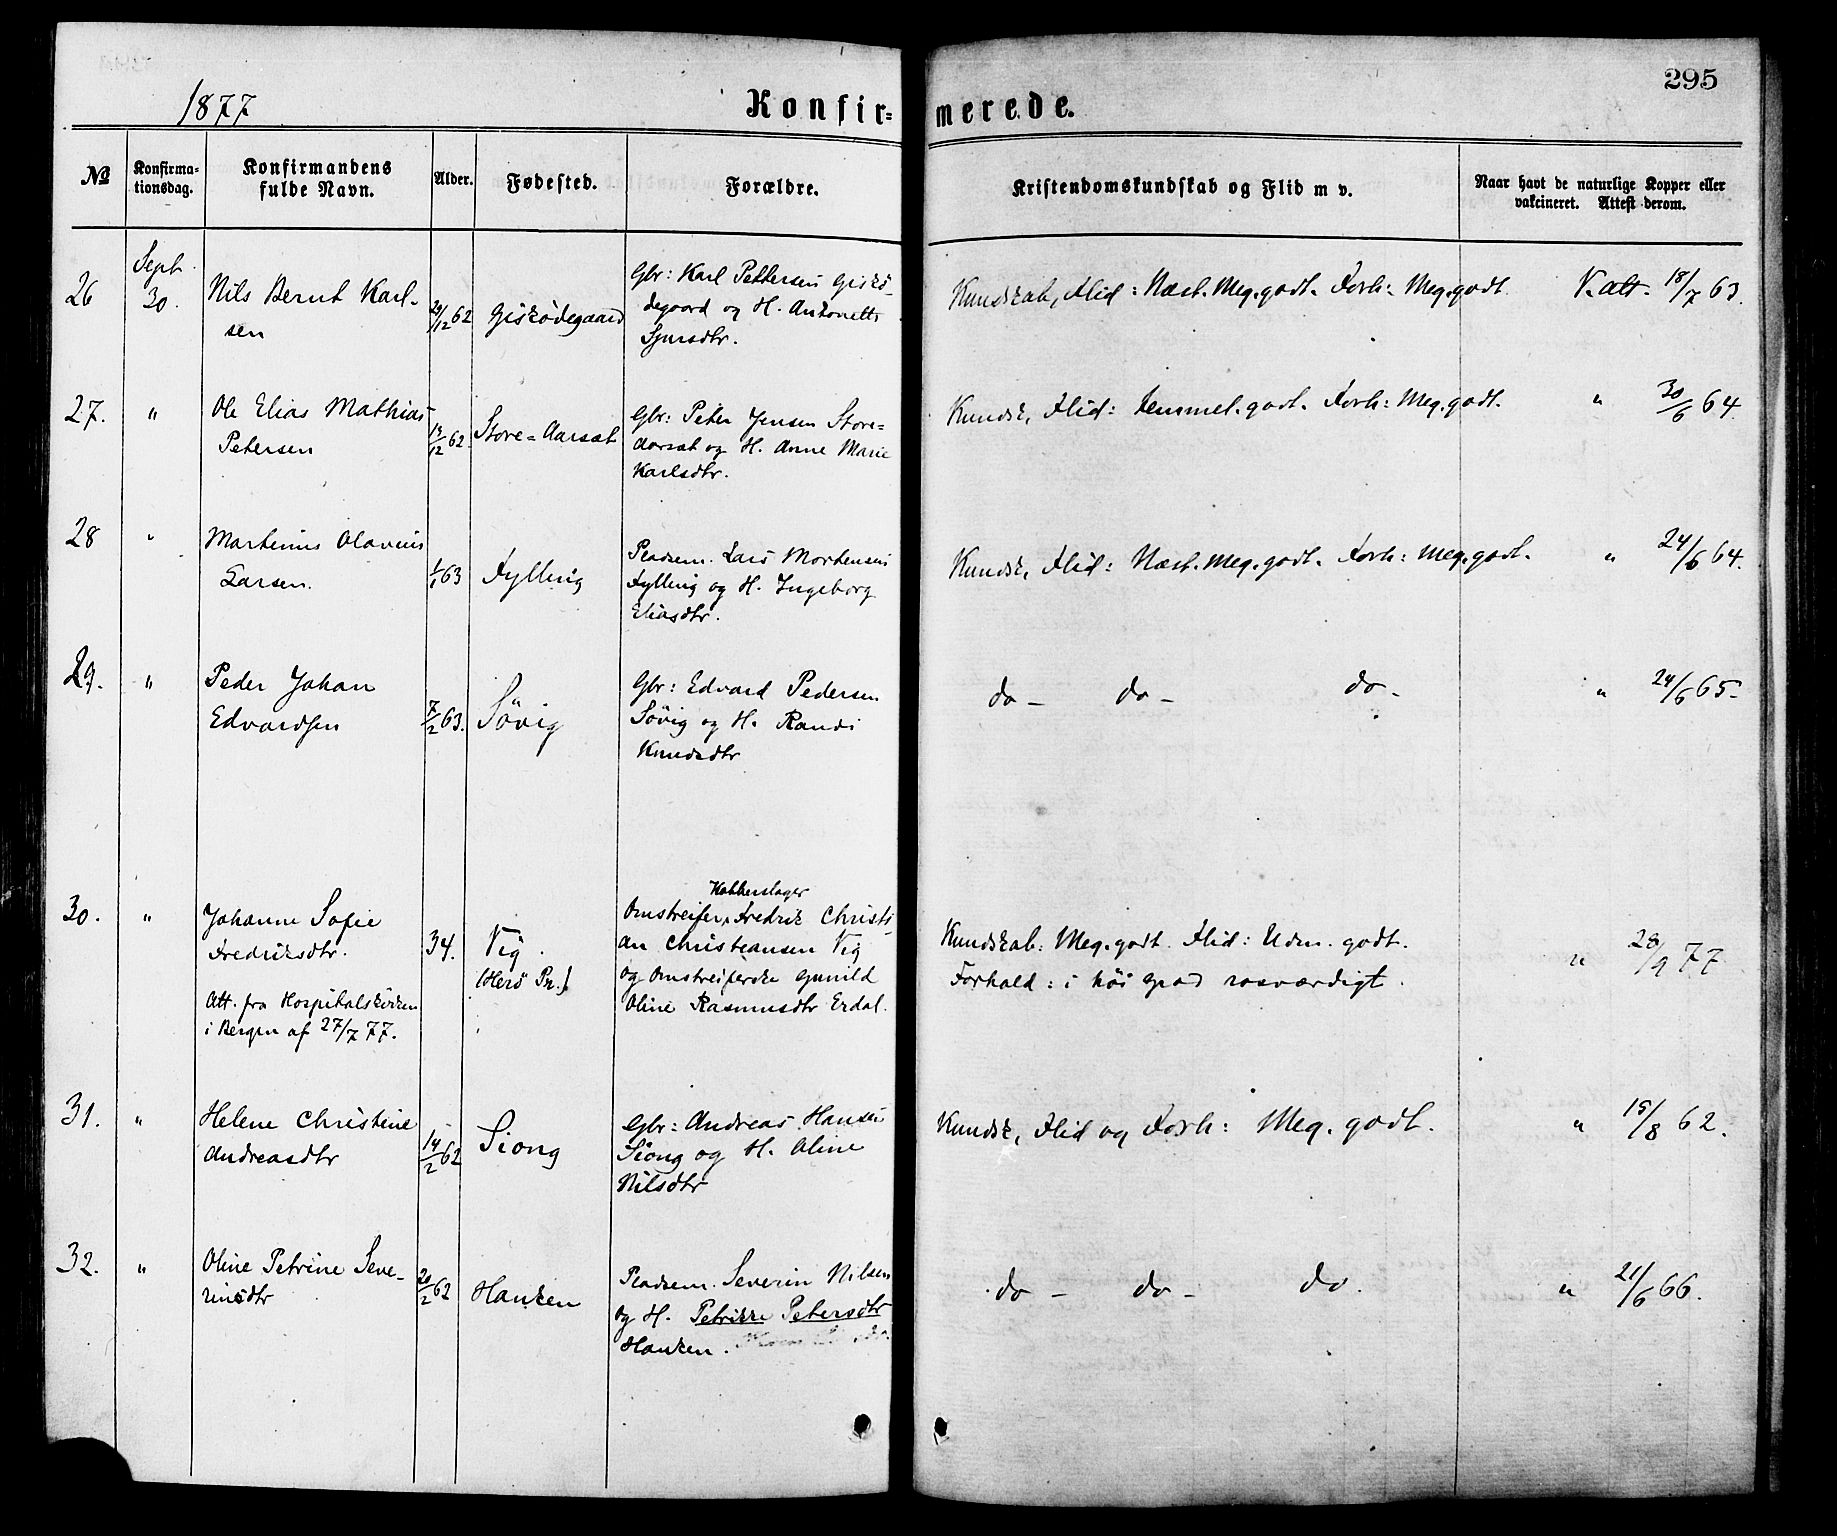 295
1877
Konfir= merede.
№ Konfirma-tionsdag. Konfirmandens fulde Navn. Alder. Fødested. Forældre. Kristendomskundskab og Flid m v. Naar havt de naturlige Kopper eller vakcineret. Attest derom.
26 Sept 30. Nils Bernt Karl- 29/12 62 Giskødegaard Gbr: Karl Pettersen Giskø- Kundskab, Flid: Næst. Meg. godt. Forh: Meg. godt V. att. 18/7 63.
sen degaard og H. Antonette
Sjursdtr.
27. " Ole Elias Mathias 13/12 62. Store=Aarsæt Gbr: Peter Jensen Store= Kundsk, Flid: Temmel. godt. Forh: Meg. godt. " 30/6 64.
Petersen Aarsæt og H. Anne Marie
Karlsdtr.
28 " Martinus Olavius 1/1 63 Fylling Pladsem. Lars Mortensen Kundsk, Flid: Næst. Meg. godt. Forh: Meg. godt. " 24/6 64.
Larsen. Fylling og H. Ingeborg
Eliasdtr.
29. " Peder Johan 7/2 63. Søvig Gbr: Edvard Pedersen do - do - do - " 24/6 65.
Edvardsen Søvig og H. Randi
Knudsdtr
30. " Johanne Sofie 34. Vig. Kobberslager
Fredriksdtr. (Herø Pr.) Omstreifer, Fredrik Christi- Kundskab: Meg. godt. Flid: Udm. godt. " 28/9 77
an Christiansen Vig Forhold: i høi Grad rosværdigt.
Att. fra Hospitalskirken og Omstreiferske Gunild
i Bergen af 27/7 77. Oline Rasmusdtr Erdal.
31. " Helene Christine 14/2 62 Siong Gbr: Andreas Hansen Kundsk, Flid og Forh: Meg. godt. " 15/8 62.
Andreasdtr Siong og H. Oline
Nilsdtr
32. " Oline Petrine Seve- 20/2 62 Hanken Pladsem. Severin Nilsen do - do - do. " 21/6 66.
rinsdtr og H. Petrikke Petersdtr
Hanken.